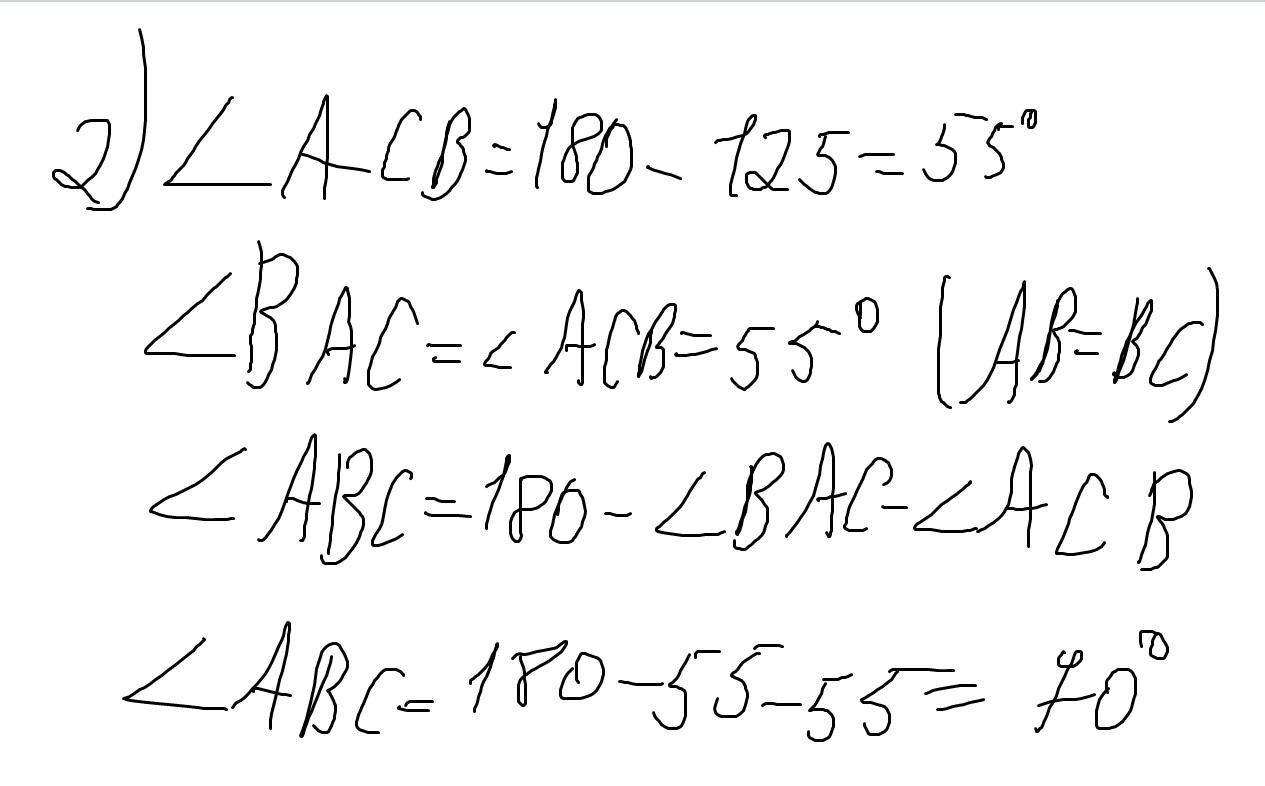 2) ∠ACB=180-125=55°
∠BAC=∠ACB=55° (AB=BC)
∠ABC=180-∠BAC-∠ACB
∠ABC=180-55-55=70°